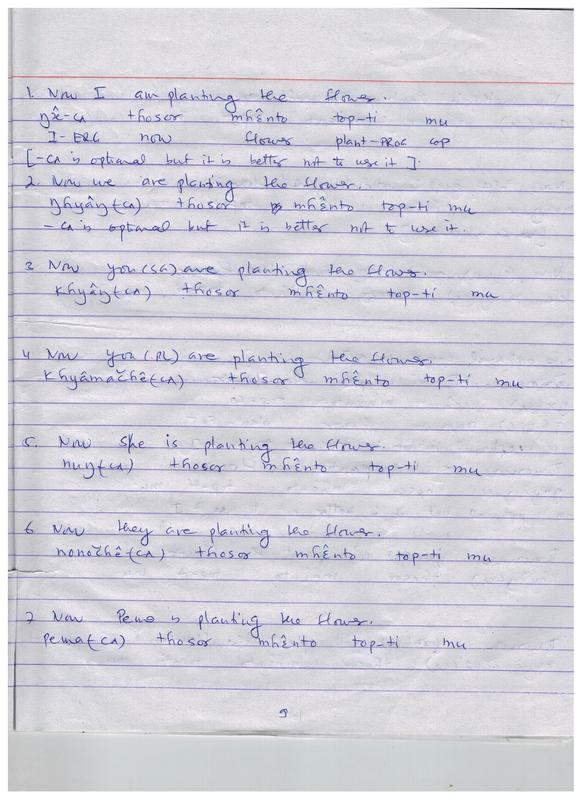 1. Now I am planting the flower.
ŋâ-CA thosor mhɛ̂nto top-ti mu
I-ERG now flower plant-PROG COP
[-CA is optional but it is better not to use it].
2. Now we are planting the flower.
ŋhyâŋ(CA) thosor mhɛ̂nto top-ti mu
-CA is optional but it is better not to use it.
3 Now you(SG) are planting the flower.
Khyâŋ(CA) thosor mhɛ̂nto top-ti mu
4 Now you(PL) are planting the flower.
Khyâmačhê(CA) thosor mhɛ̂nto top-ti mu
5. Now she is planting the flower.
huŋ(CA) thosor mhɛ̂nto top-ti mu
6 Now they are planting the flower.
nonočhê(CA) thosor mhɛ̂nto top-ti mu
7 Now Pema is planting the flower.
pema(CA) thosor mhɛ̂nto top-ti mu